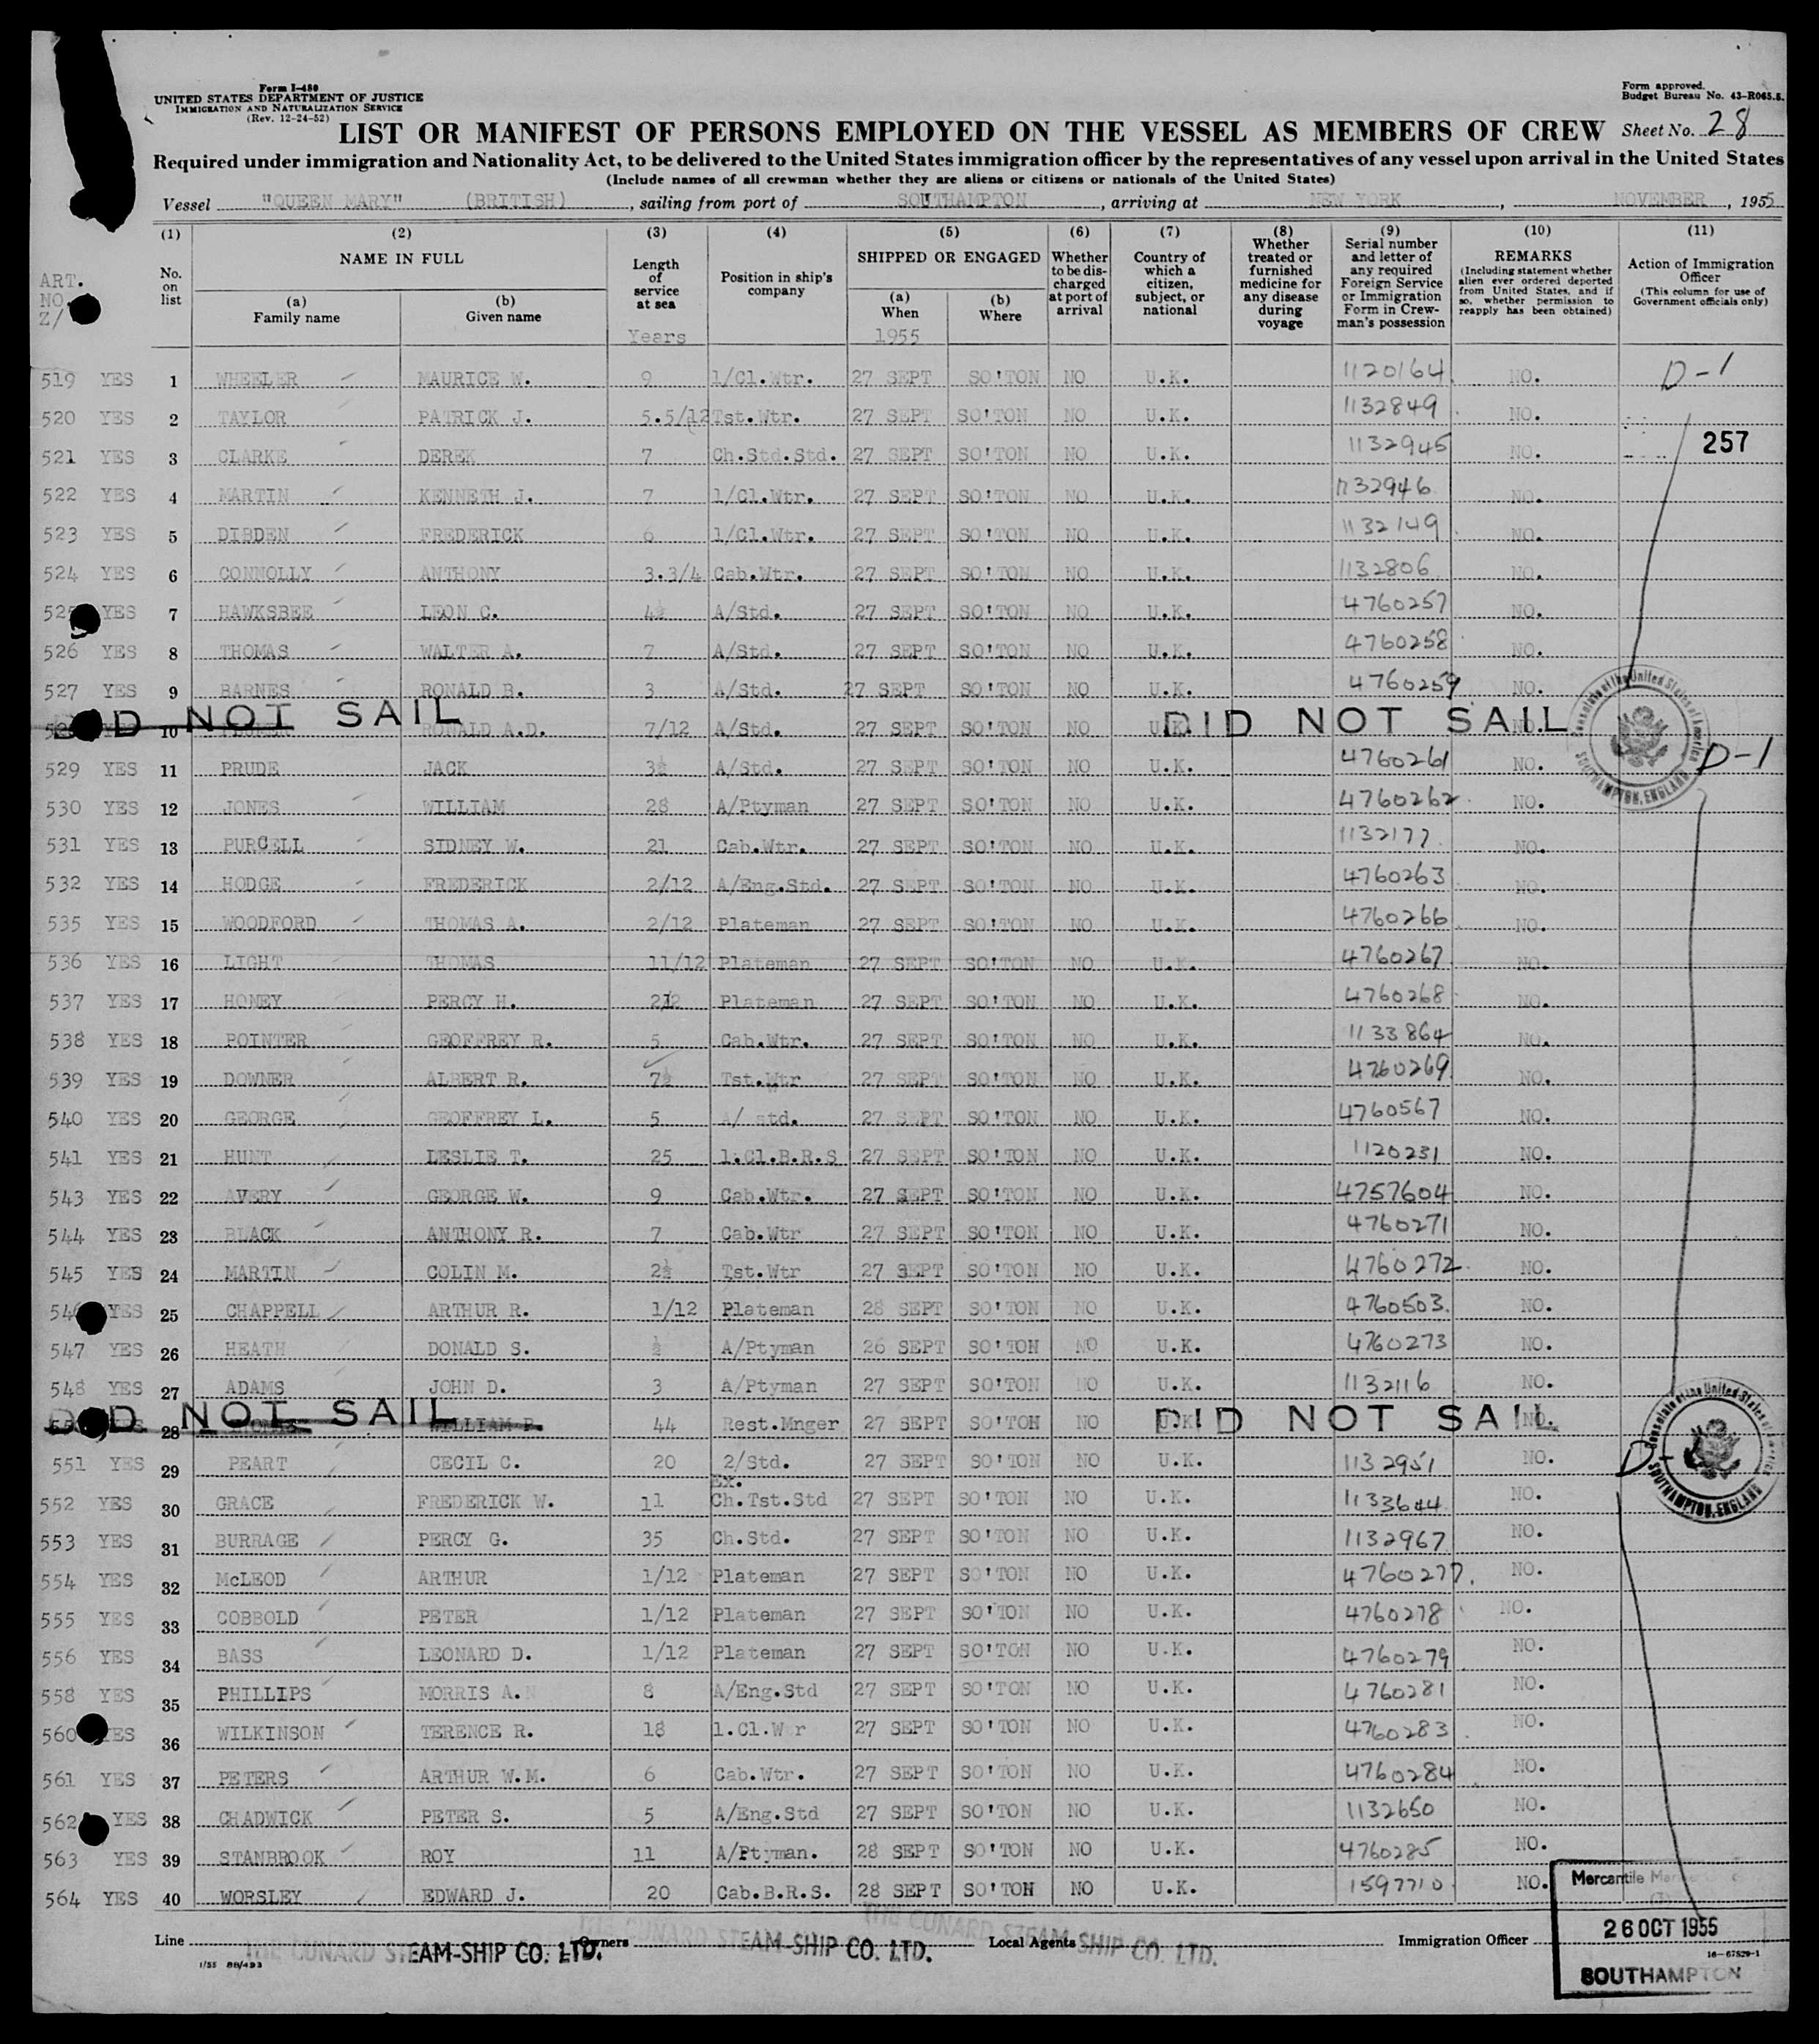 Form I-480
UNITED STATES DEPARTMENT OF JUSTICE
IMMIGRATION AND NATURALIZATION SERVICE
(Rev. 12-24-52)
Form approved.
Budget Bureau No. 43-R065.5.
LIST OR MANIFEST OF PERSONS EMPLOYED ON THE VESSEL AS MEMBERS OF CREW Sheet No. 28
Required under immigration and Nationality Act, to be delivered to the United States immigration officer by the representatives of any vessel upon arrival in the United States
(Include names of all crewman whether they are aliens or citizens or nationals of the United States)
Vessel "QUEEN MARY" (BRITISH), sailing from port of SOUTHAMPTON, arriving at NEW YORK, NOVEMBER, 1955
(1) (2) (3) (4) (5) (6) (7) (8) (9) (10) (11)
ART. NO. Z/
No. on list
NAME IN FULL
(a) Family name
(b) Given name
Length of service at sea
Years
Position in ship's company
SHIPPED OR ENGAGED
(a) When
1955
(b) Where
Whether to be discharged at port of arrival
Country of which a citizen, subject, or national
Whether treated or furnished medicine for any disease during voyage
Serial number and letter of any required Foreign Service or Immigration Form in Crewman's possession
REMARKS
(Including statement whether alien ever ordered deported from United States, and if so, whether permission to reapply has been obtained)
Action of Immigration Officer
(This column for use of Government officials only)
519 YES 1 WHEELER MAURICE W. 9 1/Cl.Wtr. 27 SEPT SO'TON NO U.K. 1120164 NO. D-1
520 YES 2 TAYLOR PATRICK J. 5.5/12 Tst.Wtr. 27 SEPT SO'TON NO U.K. 1132849 NO.
521 YES 3 CLARKE DEREK 7 Ch.Std.Std. 27 SEPT SO'TON NO U.K. 1132945 NO. 257
522 YES 4 MARTIN KENNETH J. 7 1/Cl.Wtr. 27 SEPT SO'TON NO U.K. 1132946 NO.
523 YES 5 DIBDEN FREDERICK 6 1/Cl.Wtr. 27 SEPT SO'TON NO U.K. 1132149 NO.
524 YES 6 CONNOLLY ANTHONY 3.3/4 Cab.Wtr. 27 SEPT SO'TON NO U.K. 1132806 NO.
525 YES 7 HAWKSBEE LEON C. 4½ A/Std. 27 SEPT SO'TON NO U.K. 4760257 NO.
526 YES 8 THOMAS WALTER A. 7 A/Std. 27 SEPT SO'TON NO U.K. 4760258 NO.
527 YES 9 BARNES RONALD B. 3 A/Std. 27 SEPT SO'TON NO U.K. 4760259 NO.
DID NOT SAIL 10 RONALD A.D. 7/12 A/Std. 27 SEPT SO'TON NO U.K. DID NOT SAIL NO.
Consulate of the United States of America SOUTHAMPTON, ENGLAND
529 YES 11 PRUDE JACK 3½ A/Std. 27 SEPT SO'TON NO U.K. 4760261 NO. D-1
530 YES 12 JONES WILLIAM 28 A/Ptyman 27 SEPT SO'TON NO U.K. 4760262 NO.
531 YES 13 PURCELL SIDNEY W. 21 Cab.Wtr. 27 SEPT SO'TON NO U.K. 1132177 NO.
532 YES 14 HODGE FREDERICK 2/12 A/Eng.Std. 27 SEPT SO'TON NO U.K. 4760263 NO.
535 YES 15 WOODFORD THOMAS A. 2/12 Plateman 27 SEPT SO'TON NO U.K. 4760266 NO.
536 YES 16 LIGHT THOMAS 11/12 Plateman 27 SEPT SO'TON NO U.K. 4760267 NO.
537 YES 17 HONEY PERCY H. Plateman 27 SEPT SO'TON NO U.K. 4760268 NO.
538 YES 18 POINTER GEOFFREY R. 5 Cab.Wtr. 27 SEPT SO'TON NO U.K. 1133864 NO.
539 YES 19 DOWNER ALBERT R. 7½ Tst.Wtr 27 SEPT SO'TON NO U.K. 4760269 NO.
540 YES 20 GEORGE GEOFFREY L. 5 A/ std. 27 SEPT SO'TON NO U.K. 4760567 NO.
541 YES 21 HUNT LESLIE T. 25 1.Cl.B.R.S 27 SEPT SO'TON NO U.K. 1120231 NO.
543 YES 22 AVERY GEORGE W. 9 Cab.Wtr. 27 SEPT SO'TON NO U.K. 4757604 NO.
544 YES 23 BLACK ANTHONY R. 7 Cab.Wtr 27 SEPT SO'TON NO U.K. 4760271 NO.
545 YES 24 MARTIN COLIN M. 2½ Tst.Wtr 27 SEPT SO'TON NO U.K. 4760272 NO.
546 YES 25 CHAPPELL ARTHUR R. 1/12 Plateman 28 SEPT SO'TON NO U.K. 4760503 NO.
547 YES 26 HEATH DONALD S. ½ A/Ptyman 26 SEPT SO'TON NO U.K. 4760273 NO.
548 YES 27 ADAMS JOHN D. 3 A/Ptyman 27 SEPT SO'TON NO U.K. 1132116 NO.
DID NOT SAIL 28 WILLIAM P. 44 Rest.Mnger 27 SEPT SO'TON NO U.K. DID NOT SAIL NO.
Consulate of the United States of America SOUTHAMPTON, ENGLAND
551 YES 29 PEART CECIL C. 20 2/Std. 27 SEPT SO'TON NO U.K. 1132951 NO. D-
552 YES 30 GRACE FREDERICK W. 11 EX. Ch.Tst.Std 27 SEPT SO'TON NO U.K. 1133644 NO.
553 YES 31 BURRAGE PERCY G. 35 Ch.Std. 27 SEPT SO'TON NO U.K. 1132967 NO.
554 YES 32 McLEOD ARTHUR 1/12 Plateman 27 SEPT SO'TON NO U.K. 4760277. NO.
555 YES 33 COBBOLD PETER 1/12 Plateman 27 SEPT SO'TON NO U.K. 4760278 NO.
556 YES 34 BASS LEONARD D. 1/12 Plateman 27 SEPT SO'TON NO U.K. 4760279 NO.
558 YES 35 PHILLIPS MORRIS A. 8 A/Eng.Std 27 SEPT SO'TON NO U.K. 4760281 NO.
560 YES 36 WILKINSON TERENCE R. 18 1.Cl.W r 27 SEPT SO'TON NO U.K. 4760283 NO.
561 YES 37 PETERS ARTHUR W.M. 6 Cab.Wtr. 27 SEPT SO'TON NO U.K. 4760284 NO.
562 YES 38 CHADWICK PETER S. 5 A/Eng.Std 27 SEPT SO'TON NO U.K. 1132650 NO.
563 YES 39 STANBROOK ROY 11 A/Ptyman. 28 SEPT SO'TON NO U.K. 4760285 NO.
564 YES 40 WORSLEY EDWARD J. 20 Cab.B.R.S. 28 SEPT SO'TON NO U.K. 1597710 NO.
Mercantile
26 OCT 1955
SOUTHAMPTON
Line THE CUNARD STEAM-SHIP CO. LTD. Owners THE CUNARD STEAM-SHIP CO. LTD. Local Agents THE CUNARD STEAM-SHIP CO. LTD. Immigration Officer
1/55 BB/493
16-67529-1